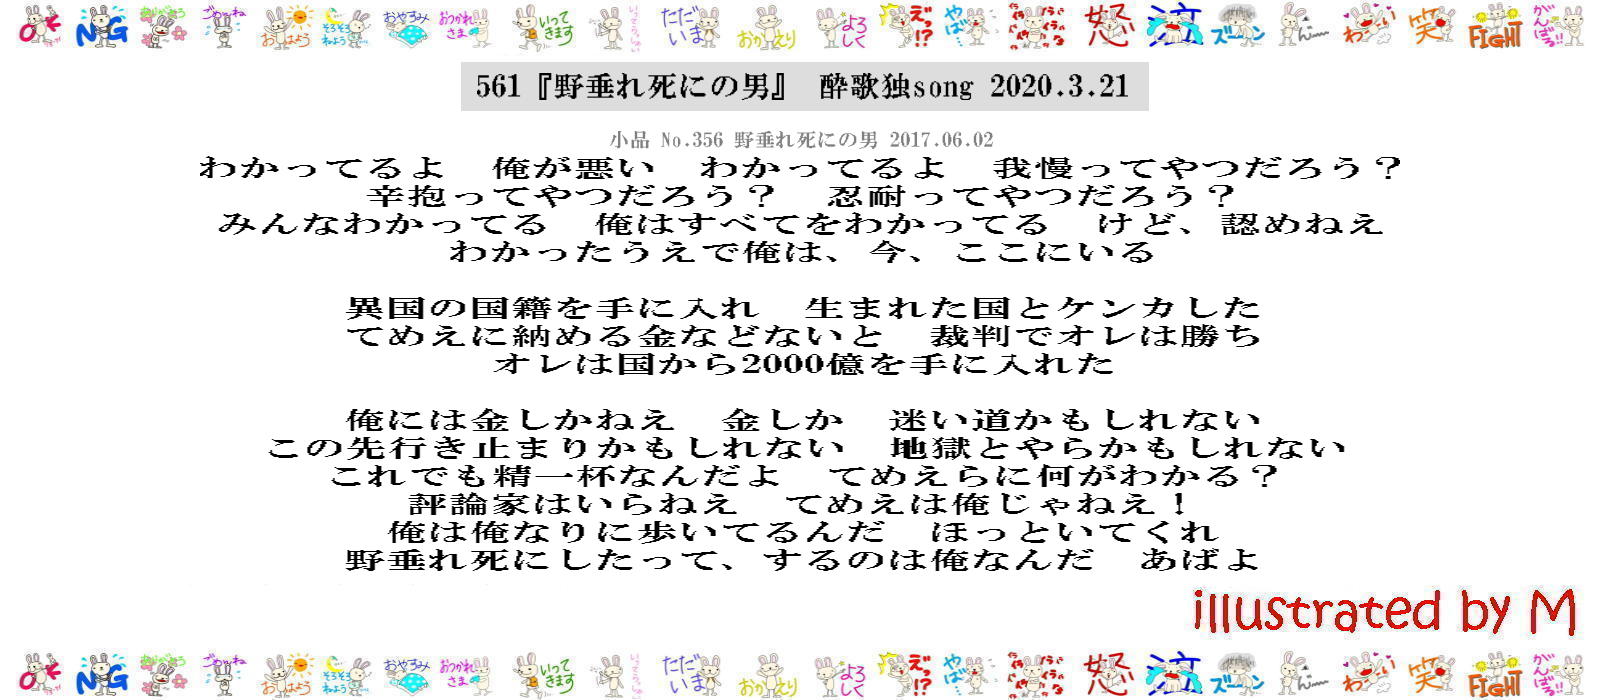 OK NG ありがとう ごめんね おはよう そろそろねよう おやすみ おつかれさま いってきます いってらっしゃい ただいま おかえり よろしく えっ!? やば… イライライライラ 怒 泣 ズーン ん～ わーい 笑 FIGHT がんばる!!
561『野垂れ死にの男』 酔歌独song 2020.3.21
小品 No.356 野垂れ死にの男 2017.06.02
わかってるよ 俺が悪い わかってるよ 我慢ってやつだろう？
辛抱ってやつだろう？ 忍耐ってやつだろう？
みんなわかってる 俺はすべてをわかってる けど、認めねえ
わかったうえで俺は、今、ここにいる
異国の国籍を手に入れ 生まれた国とケンカした
てめえに納める金などないと 裁判でオレは勝ち
オレは国から2000億を手に入れた
俺には金しかねえ 金しか 迷い道かもしれない
この先行き止まりかもしれない 地獄とやらかもしれない
これでも精一杯なんだよ てめえらに何がわかる？
評論家はいらねえ てめえは俺じゃねえ！
俺は俺なりに歩いてるんだ ほっといてくれ
野垂れ死にしたって、するのは俺なんだ あばよ
illustrated by M
OK NG ありがとう ごめんね おはよう そろそろねよう おやすみ おつかれさま いってきます いってらっしゃい ただいま おかえり よろしく えっ!? やば… イライライライラ 怒 泣 ズーン ん～ わーい 笑 FIGHT がんばる!!